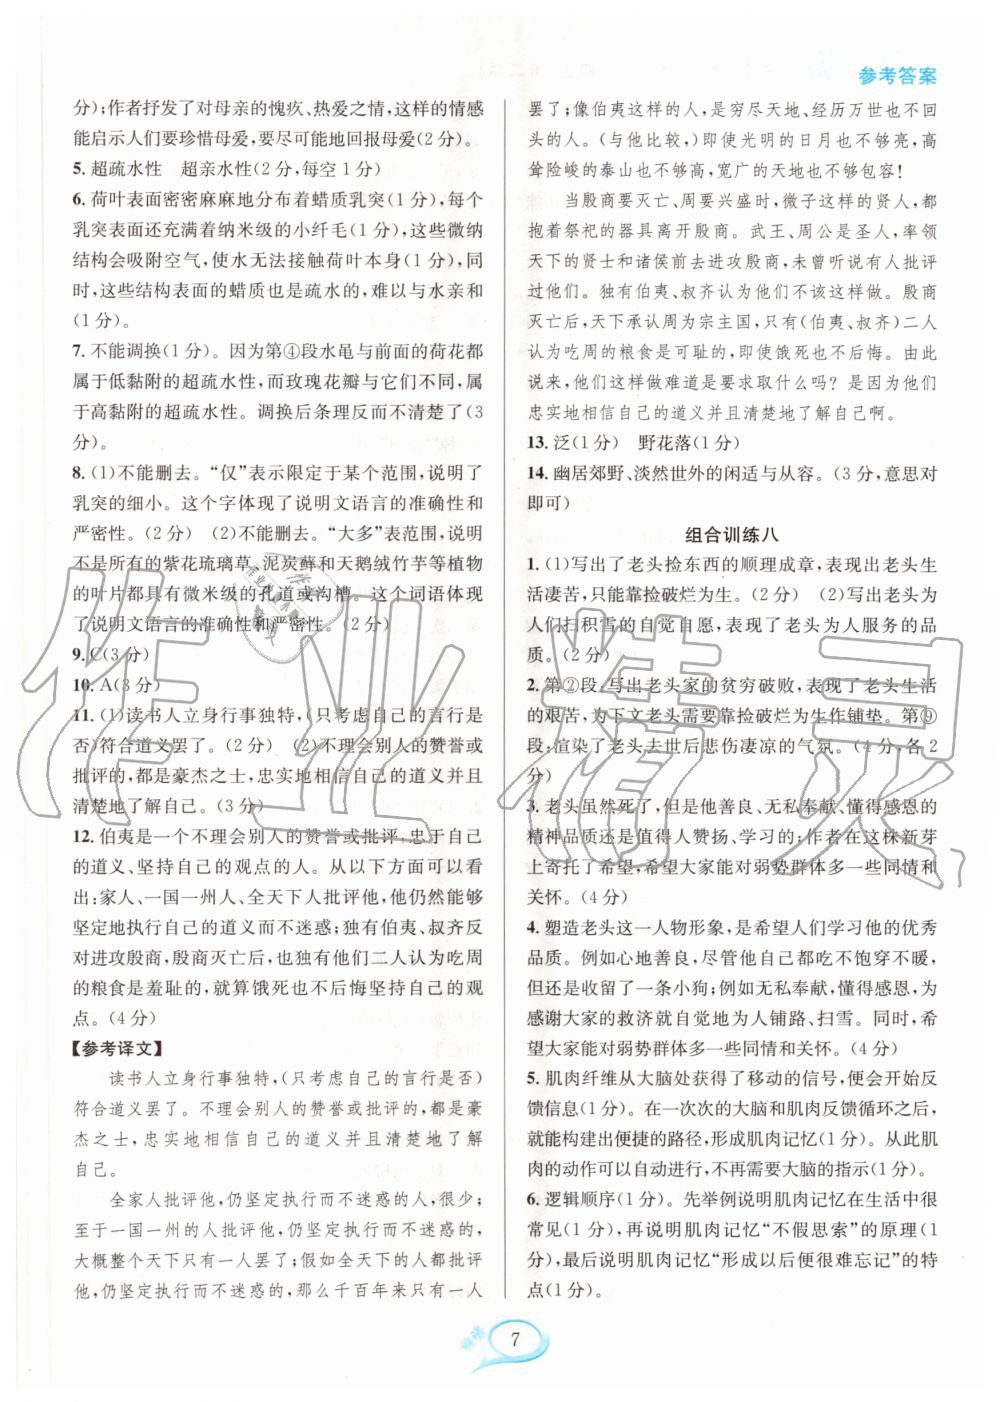 参考答案
分);作者抒发了对母亲的愧疚、热爱之情,这样的情感
能启示人们要珍惜母爱,要尽可能地回报母爱(2分)。
5. 超疏水性 超亲水性(2分,每空1分)
6. 荷叶表面密密麻麻地分布着蜡质乳突(1分),每个
乳突表面还充满着纳米级的小纤毛(1分),这些微纳
结构会吸附空气,使水无法接触荷叶本身(1分),同
时,这些结构表面的蜡质也是疏水的,难以与水亲和
(1分)。
7. 不能调换(1分)。因为第④段水黾与前面的荷花都
属于低黏附的超疏水性,而玫瑰花瓣与它们不同,属
于高黏附的超疏水性。调换后条理反而不清楚了(3
分)。
8. (1)不能删去。“仅”表示限定于某个范围,说明了
乳突的细小。这个字体现了说明文语言的准确性和
严密性。(2分) (2)不能删去。“大多”表范围,说明
不是所有的紫花琉璃草、泥炭藓和天鹅绒竹芋等植物
的叶片都具有微米级的孔道或沟槽。这个词语体现
了说明文语言的准确性和严密性。(2分)
9. C(3分)
10. A(3分)
11. (1)读书人立身行事独特,(只考虑自己的言行是
否)符合道义罢了。(2分) (2)不理会别人的赞誉或
批评的,都是豪杰之士,忠实地相信自己的道义并且
清楚地了解自己。(3分)
12. 伯夷是一个不理会别人的赞誉或批评,忠于自己
的道义、坚持自己的观点的人。从以下方面可以看
出:家人、一国一州人、全天下人批评他,他仍然能够
坚定地执行自己的道义而不迷惑;独有伯夷、叔齐反
对进攻殷商,殷商灭亡后,也独有他们二人认为吃周
的粮食是羞耻的,就算饿死也不后悔坚持自己的观
点。(4分)
【参考译文】
读书人立身行事独特,(只考虑自己的言行是否)
符合道义罢了。不理会别人的赞誉或批评的,都是豪
杰之士,忠实地相信自己的道义并且清楚地了解
自己。
全家人批评他,仍坚定执行而不迷惑的人,很少;
至于一国一州的人批评他,仍坚定执行而不迷惑的,
大概整个天下只有一人罢了;假如全天下人都批评
他,仍坚定执行而不迷惑的,那么千百年来只有一人
罢了;像伯夷这样的人,是穷尽天地、经历万世也不回
头的人。(与他比较,)即使光明的日月也不够亮,高
耸险峻的泰山也不够高,宽广的天地也不够包容!
当殷商要灭亡、周要兴盛时,微子这样的贤人,都
抱着祭祀的器具离开殷商。武王、周公是圣人,率领
天下的贤士和诸侯前去进攻殷商,未曾听说有人批评
过他们。独有伯夷、叔齐认为他们不该这样做。殷商
灭亡后,天下承认周为宗主国,只有(伯夷、叔齐)二人
认为吃周的粮食是可耻的,即使饿死也不后悔。由此
说来,他们这样做难道是要求取什么吗?是因为他们
忠实地相信自己的道义并且清楚地了解自己啊。
13. 泛(1分) 野花落(1分)
14. 幽居郊野、淡然世外的闲适与从容。(3分,意思对
即可)
组合训练八
1. (1)写出了老头捡东西的顺理成章,表现出老头生
活凄苦,只能靠捡破烂为生。(2分) (2)写出老头为
人们扫积雪的自觉自愿,表现了老头为人服务的品
质。(2分)
2. 第②段,写出老头家的贫穷破败,表现了老头生活
的艰苦,为下文老头需要靠捡破烂为生作铺垫。第⑨
段,渲染了老头去世后悲伤凄凉的气氛。(4分,各2
分)
3. 老头虽然死了,但是他善良、无私奉献、懂得感恩的
精神品质还是值得人赞扬、学习的;作者在这株新芽
上寄托了希望,希望大家能对弱势群体多一些同情和
关怀。(4分)
4. 塑造老头这一人物形象,是希望人们学习他的优秀
品质。例如心地善良,尽管他自己都没吃饱穿不暖,
但还是收留了一条小狗;无私奉献,懂得感恩,为
感谢大家的救济就自觉地为人铺路、扫雪。同时,希
望大家能对弱势群体多一些同情和关怀。(4分)
5. 肌肉纤维从大脑处获得了移动的信号,便会开始反
馈信息(1分)。在一次次的大脑和肌肉反馈循环之后,
就能构建出便捷的路径,形成肌肉记忆(1分)。此后肌
肉的动作可以自动进行,不再需要大脑的指示(1分)。
6. 逻辑顺序(1分)。先举例说明肌肉记忆在生活中很
常见(1分),再说明肌肉记忆“不假思索”的原理(1
分),最后说明肌肉记忆“形成以后便很难忘记”的特
点(1分)。
7
作业精灵